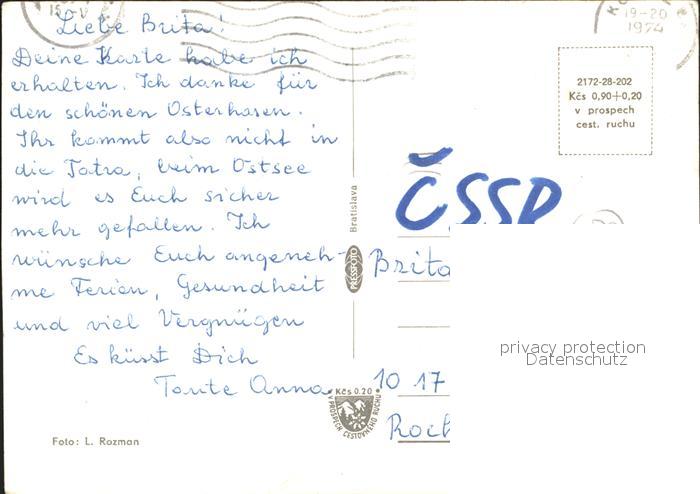 15.-V
Liebe Brita!
Deine Karte habe ich
erhalten. Ich danke für
den schönen Osterhasen.
Ihr kommt also nicht in
die Tatra, beim Ostsee
wird es Euch sicher
mehr gefallen. Ich
wünsche Euch angeneh-
me Ferien, Gesundheit
und viel Vergnügen
Es küsst Dich
Tante Anna
Foto: L. Rozman
Bratislava
PRESSFOTO
Kčs 0.20
V PROSPECH CESTOVNÉHO RUCHU
19-20
1974
2172-28-202
Kčs 0,90+0,20
v prospech
cest. ruchu
ČSSR
Brita
10 17
Roch
privacy protection
Datenschutz